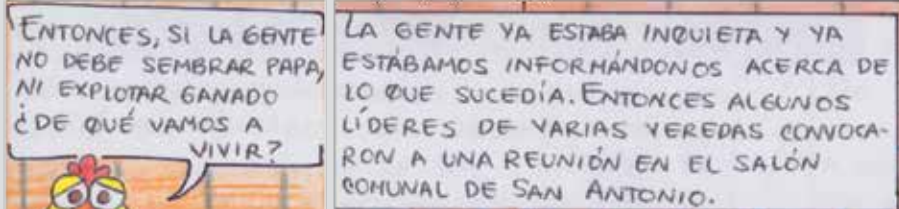 ENTONCES, SI LA GENTE
NO DEBE SEMBRAR PAPA,
NI EXPLOTAR GANADO
¿DE QUÉ VAMOS A
VIVIR?
LA GENTE YA ESTABA INQUIETA Y YA
ESTÁBAMOS INFORMÁNDONOS ACERCA DE
LO QUE SUCEDÍA. ENTONCES ALGUNOS
LÍDERES DE VARIAS VEREDAS CONVOCA-
RON A UNA REUNIÓN EN EL SALÓN
COMUNAL DE SAN ANTONIO.